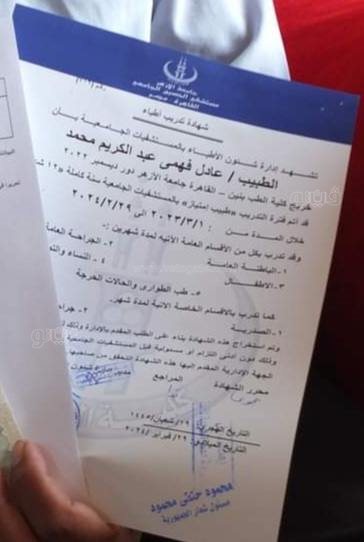 جامعة الأزهر
مستشفى الحسين الجامعى
القاهرة مصر
شهادة تدريب أطباء
تشهد إدارة شئون الأطباء بالمستشفيات الجامعية بـــان
الطبيب / عادل فهمى عبد الكريم محمد
خريج كلية الطب بنين - القاهرة جامعة الأزهر دور ديسمبر ٢٠٢٢
قد أتم فترة التدريب بوظيفة بالمستشفيات الجامعية سنة كاملة "١٢
خلال المدة من : ٢٠٢٣/٣/١ الى ٢٠٢٤/٢/٢٩
وقد تدرب بكل من الأقسام العامة الاتية لمدة شهرين :-
١-الباطنة العامة ٢- الجراحة العامة
٣-الاطفال ٤- النساء
٥- طب الطوارئ والحالات الحرجة
كما تدرب بالاقسام الخاصة الاتية لمدة شهر.
١-الصدرية ٢-
وتم استخراج هذه الشهادة بناء على الطلب المقدم بالإدارة
وذلك دون أدنى التزام او مسئولية قبل المستشفيات الجامعية
الجهة الإدارية المقدم اليها هذه الشهادة التحقق من صاحبها
محرر الشهادة المراجع شئون
التاريخ الهجرى: ١٩/شعبان/١٤٤٥
التاريخ الميلادى: ٢٩/فبراير/٢٠٢٤
محمود حنفى محمود
مسئول شعار الجمهورية